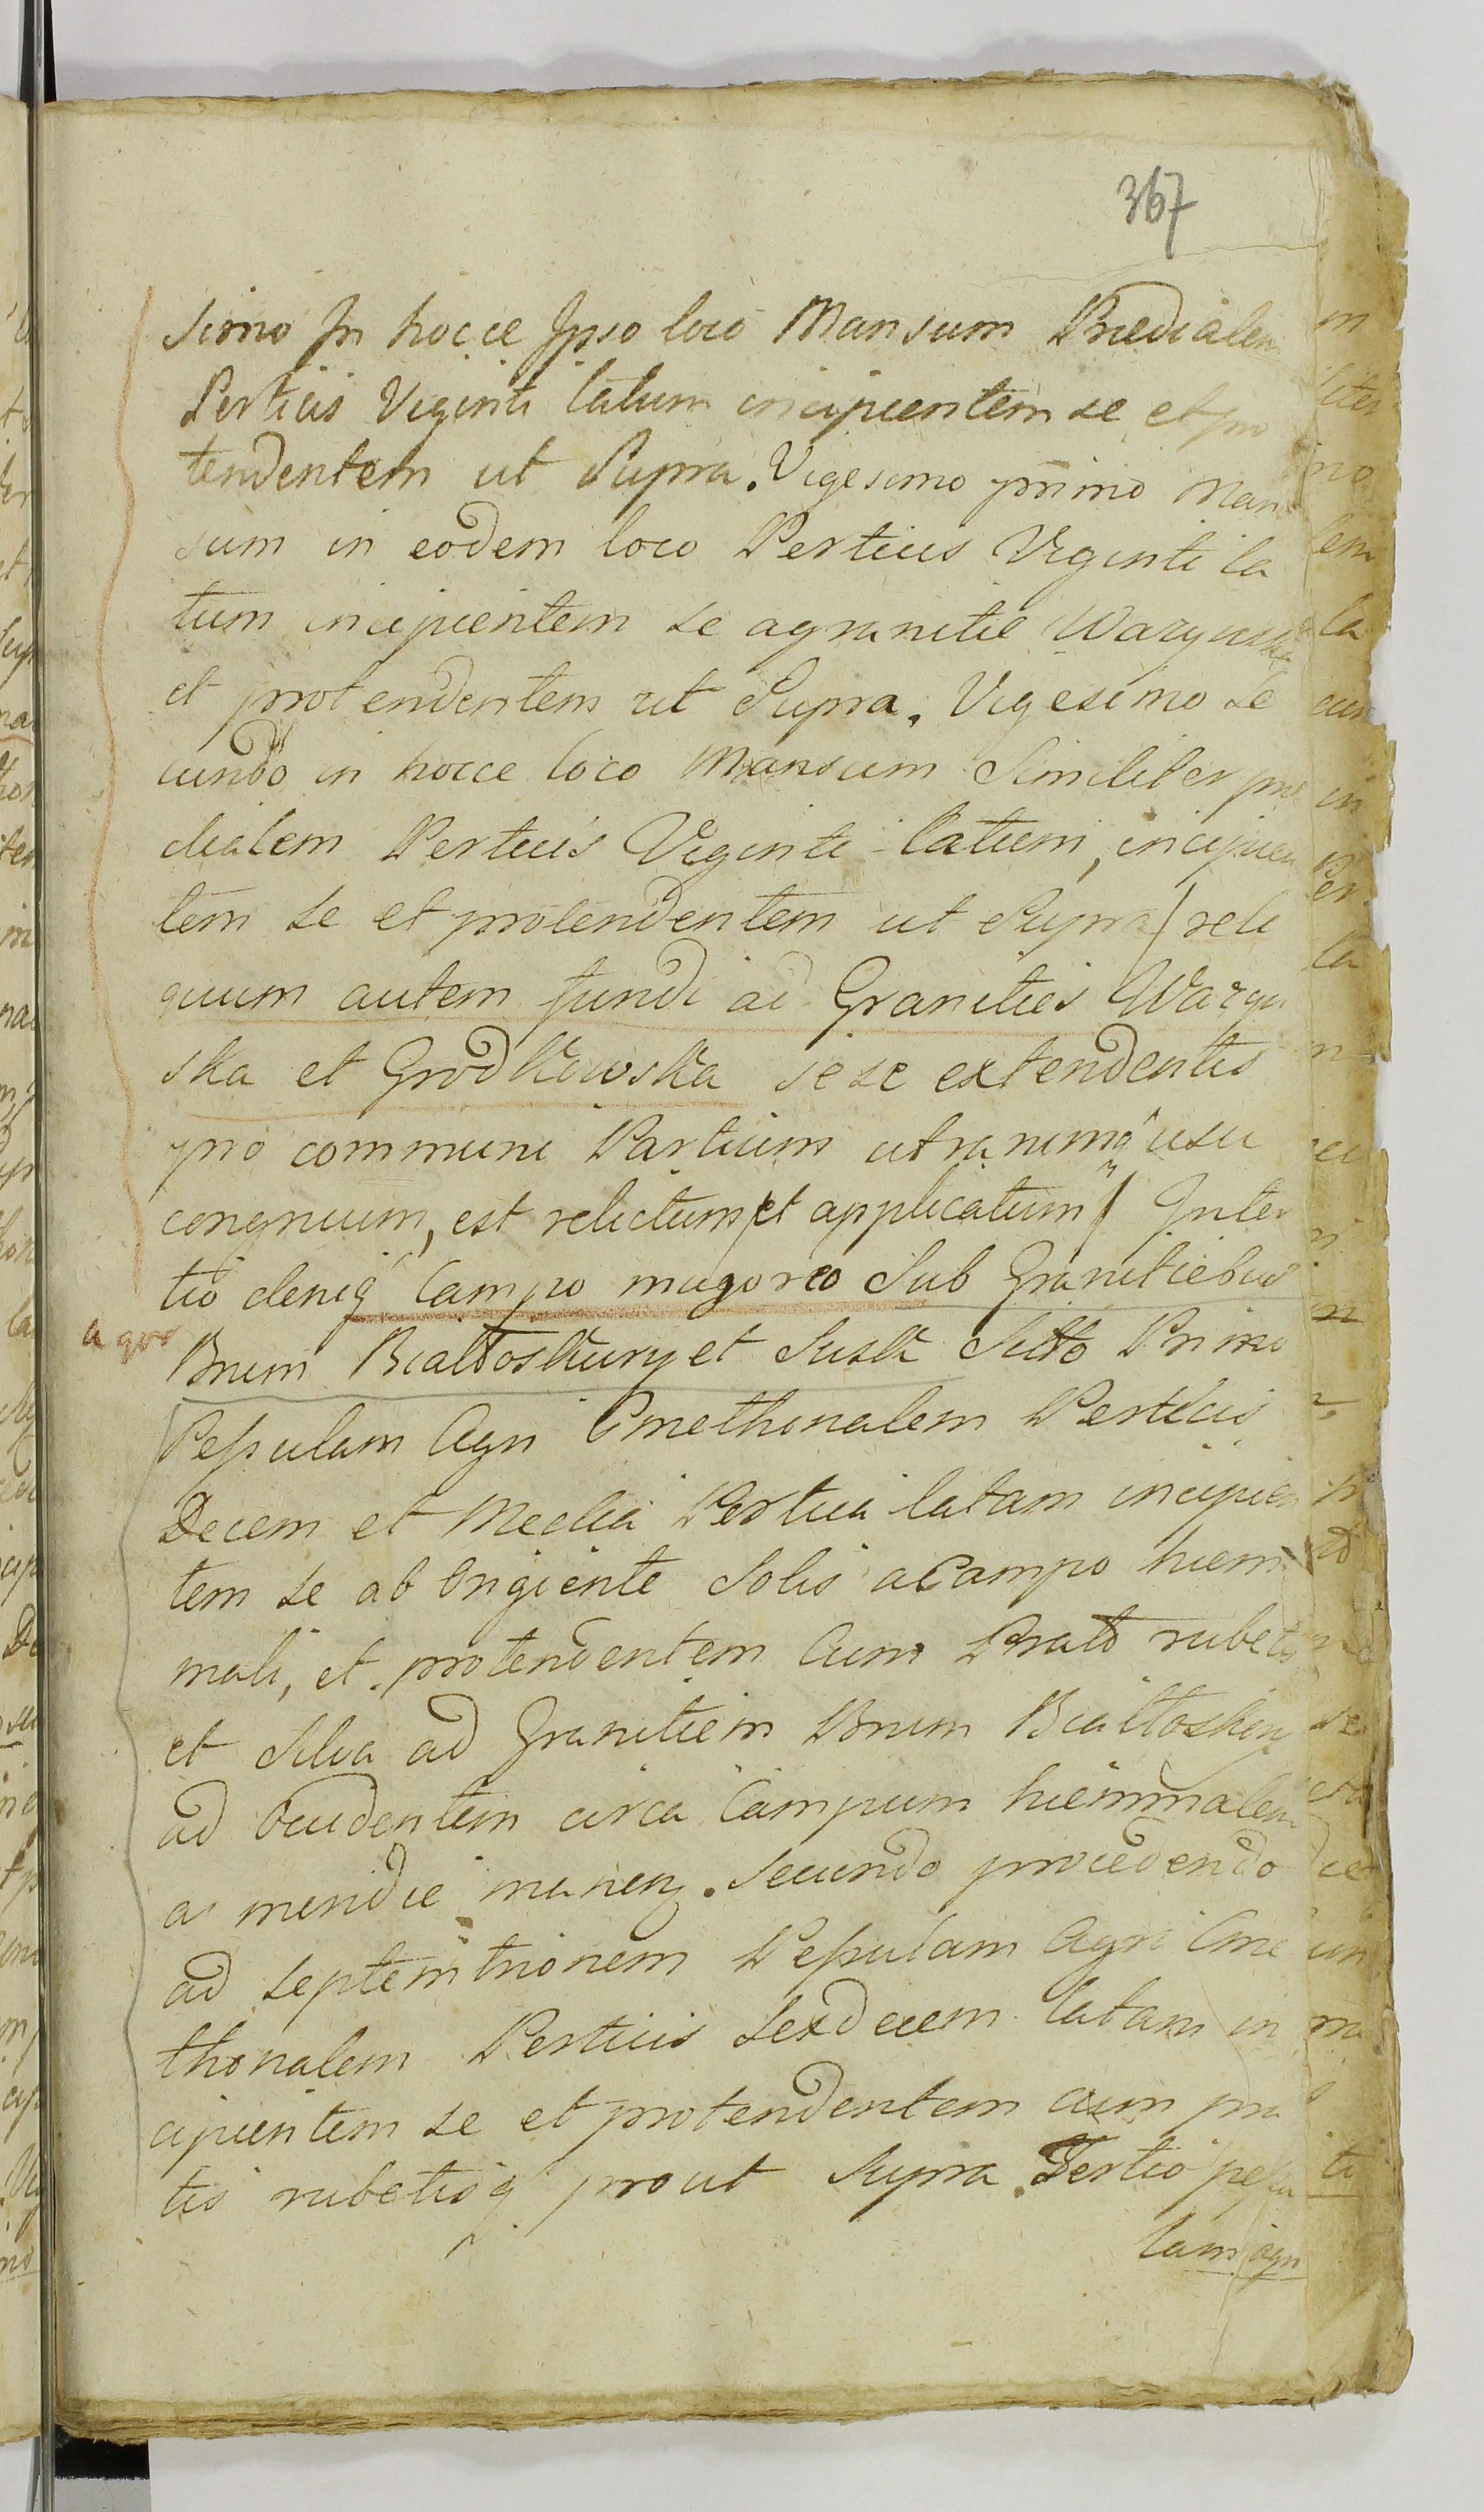 367
simo In hocce Ipso loco Mansum Prædialem
Perticis Viginti latum incipientem se et pro
tendentem ut Supra. Vigesimo primo Man
sum in eodem loco Perticis Viginti la
tum incipientem se a granitie
et protendentem ut Supra. Vigesimo Se
cundo in hocce loco Mansum Similiter præ
dialem Perticis Viginti latum, incipien
tem se et protendentem ut Supra) reli
quum autem fundi ad Granities Wargu
ska et Grodkowska sese extendentis
pro communi Partium utrarumq usu
congruum, est relictum (et applicatum) In ter
tio deniq Campo mayoreo Sub Granitiebus
a gr
Bnum Białłoskury et Susk Sitto Primo
Pessulam Agri Cmethonalem Perticis
Decem et Media Pertica latam incipien
tem se ab Origiente Solis a Campo hiem
mali, et protendentem Cum Prato rubetis
et Silva ad Granitiem Bnum Białłosken
ad Occidentem circa Campum hiemmalem
a meridie manen. Secundo procedendo
ad septemtrionem Pessulam Agri Cme
thonalem Perticis Sexdecem latam in
cipientem se et protendentem cum pra
tis rubetisq prout Supra. Tertio pessu
lam agri